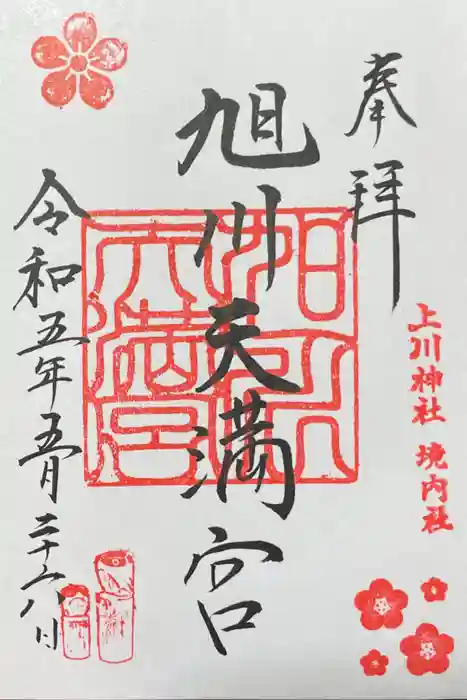 奉拝
上川神社 境内社
旭川天満宮
令和五年五月二十八日